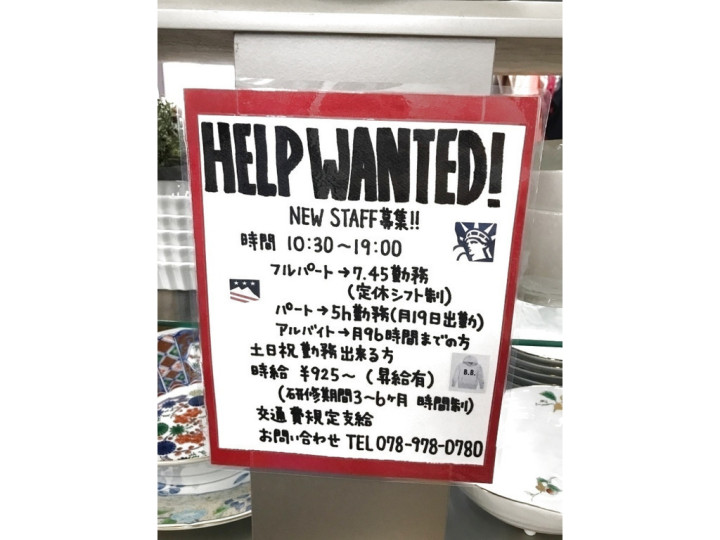 HELP WANTED!
NEW STAFF募集!!
時間 10:30〜19:00
フルパート→7.45勤務
(定休シフト制)
パート→5h勤務(月19日出勤)
アルバイト→月96時間までの方
土日祝勤務出来る方
時給 ¥925〜 (昇給有)
B.B.
(研修期間3〜6ヶ月 時間制)
交通費規定支給
お問い合わせ TEL 078-978-0780